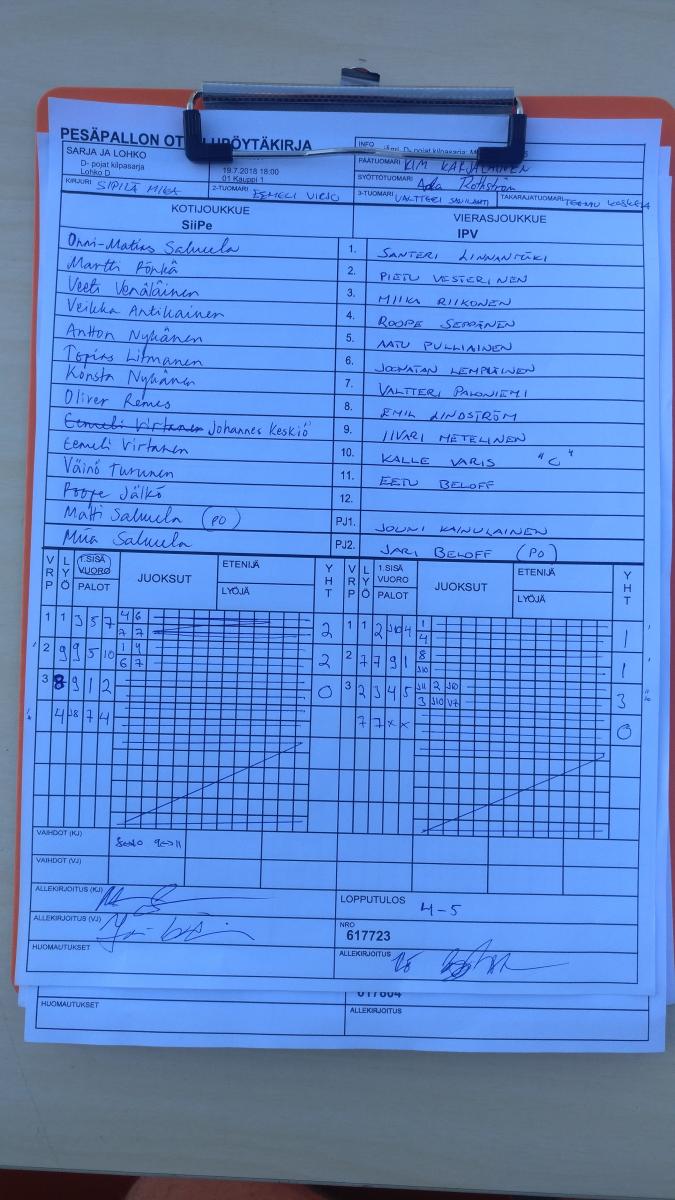 PESÄPALLON OT PÖYTÄKIRJA
SARJA JA LOHKO
D- pojat kilpasarja
Lohko D
19.7.2018 18:00
01 Kauppi 1
INFO
D- pojat kilpasarja:
PÄÄTUOMARI KIM KARJALAINEN
SYÖTTÖTUOMARI Ada Rothström
KIRJURI SIPILÄ MIKA
2-TUOMARI EEMELI VIRJO
3-TUOMARI VALTTERI
TAKARAJATUOMARI TEEMU
KOTIJOUKKUE
SiiPe
VIERASJOUKKUE
IPV
Onni-Matias Salmela 1. SANTERI LINNANMÄKI
Martti Pönkä 2. PIETU VESTERINEN
Veeti Venäläinen 3. MIIKA RIIKONEN
Veikka Antikainen 4. ROOPE SEPPÄNEN
Antton Nykänen 5. AATU PULLIAINEN
Topias Litmanen 6. JOONATAN LEMPIÄINEN
Konsta Nykänen 7. VALTTERI PALONIEMI
Oliver Remes 8. EMIL LINDSTRÖM
Eemeli Virtanen Johannes Keskiö 9. IIVARI METELINEN
Eemeli Virtanen 10. KALLE VARIS "C"
Väinö Turunen 11. EETU BELOFF
Roope Jälkö 12.
Matti Salmela (PO) PJ1. JOUNI KAINULAINEN
Miia Salmela PJ2. JARI BELOFF (PO)
VRP LYÖ 1.SISÄ VUORO PALOT JUOKSUT ETENIJÄ LYÖJÄ YHT VRP LYÖ 1.SISÄ VUORO PALOT JUOKSUT ETENIJÄ LYÖJÄ YHT
1 1 3 5 7 4 6 7 7 2 1 1 2 J10 4 1 4 1
2 9 9 5 10 1 4 6 7 2 2 7 7 9 1 8 J10 1
3 8 9 1 2 0 3 2 3 4 5 J11 2 J10 3 J10 V7 3
4 J8 7 4 7 7 x x 0
VAIHDOT (KJ) 8↔10 9↔11
VAIHDOT (VJ)
ALLEKIRJOITUS (KJ)
LOPPUTULOS 4-5
ALLEKIRJOITUS (VJ)
NRO
617723
HUOMAUTUKSET
ALLEKIRJOITUS
HUOMAUTUKSET
ALLEKIRJOITUS